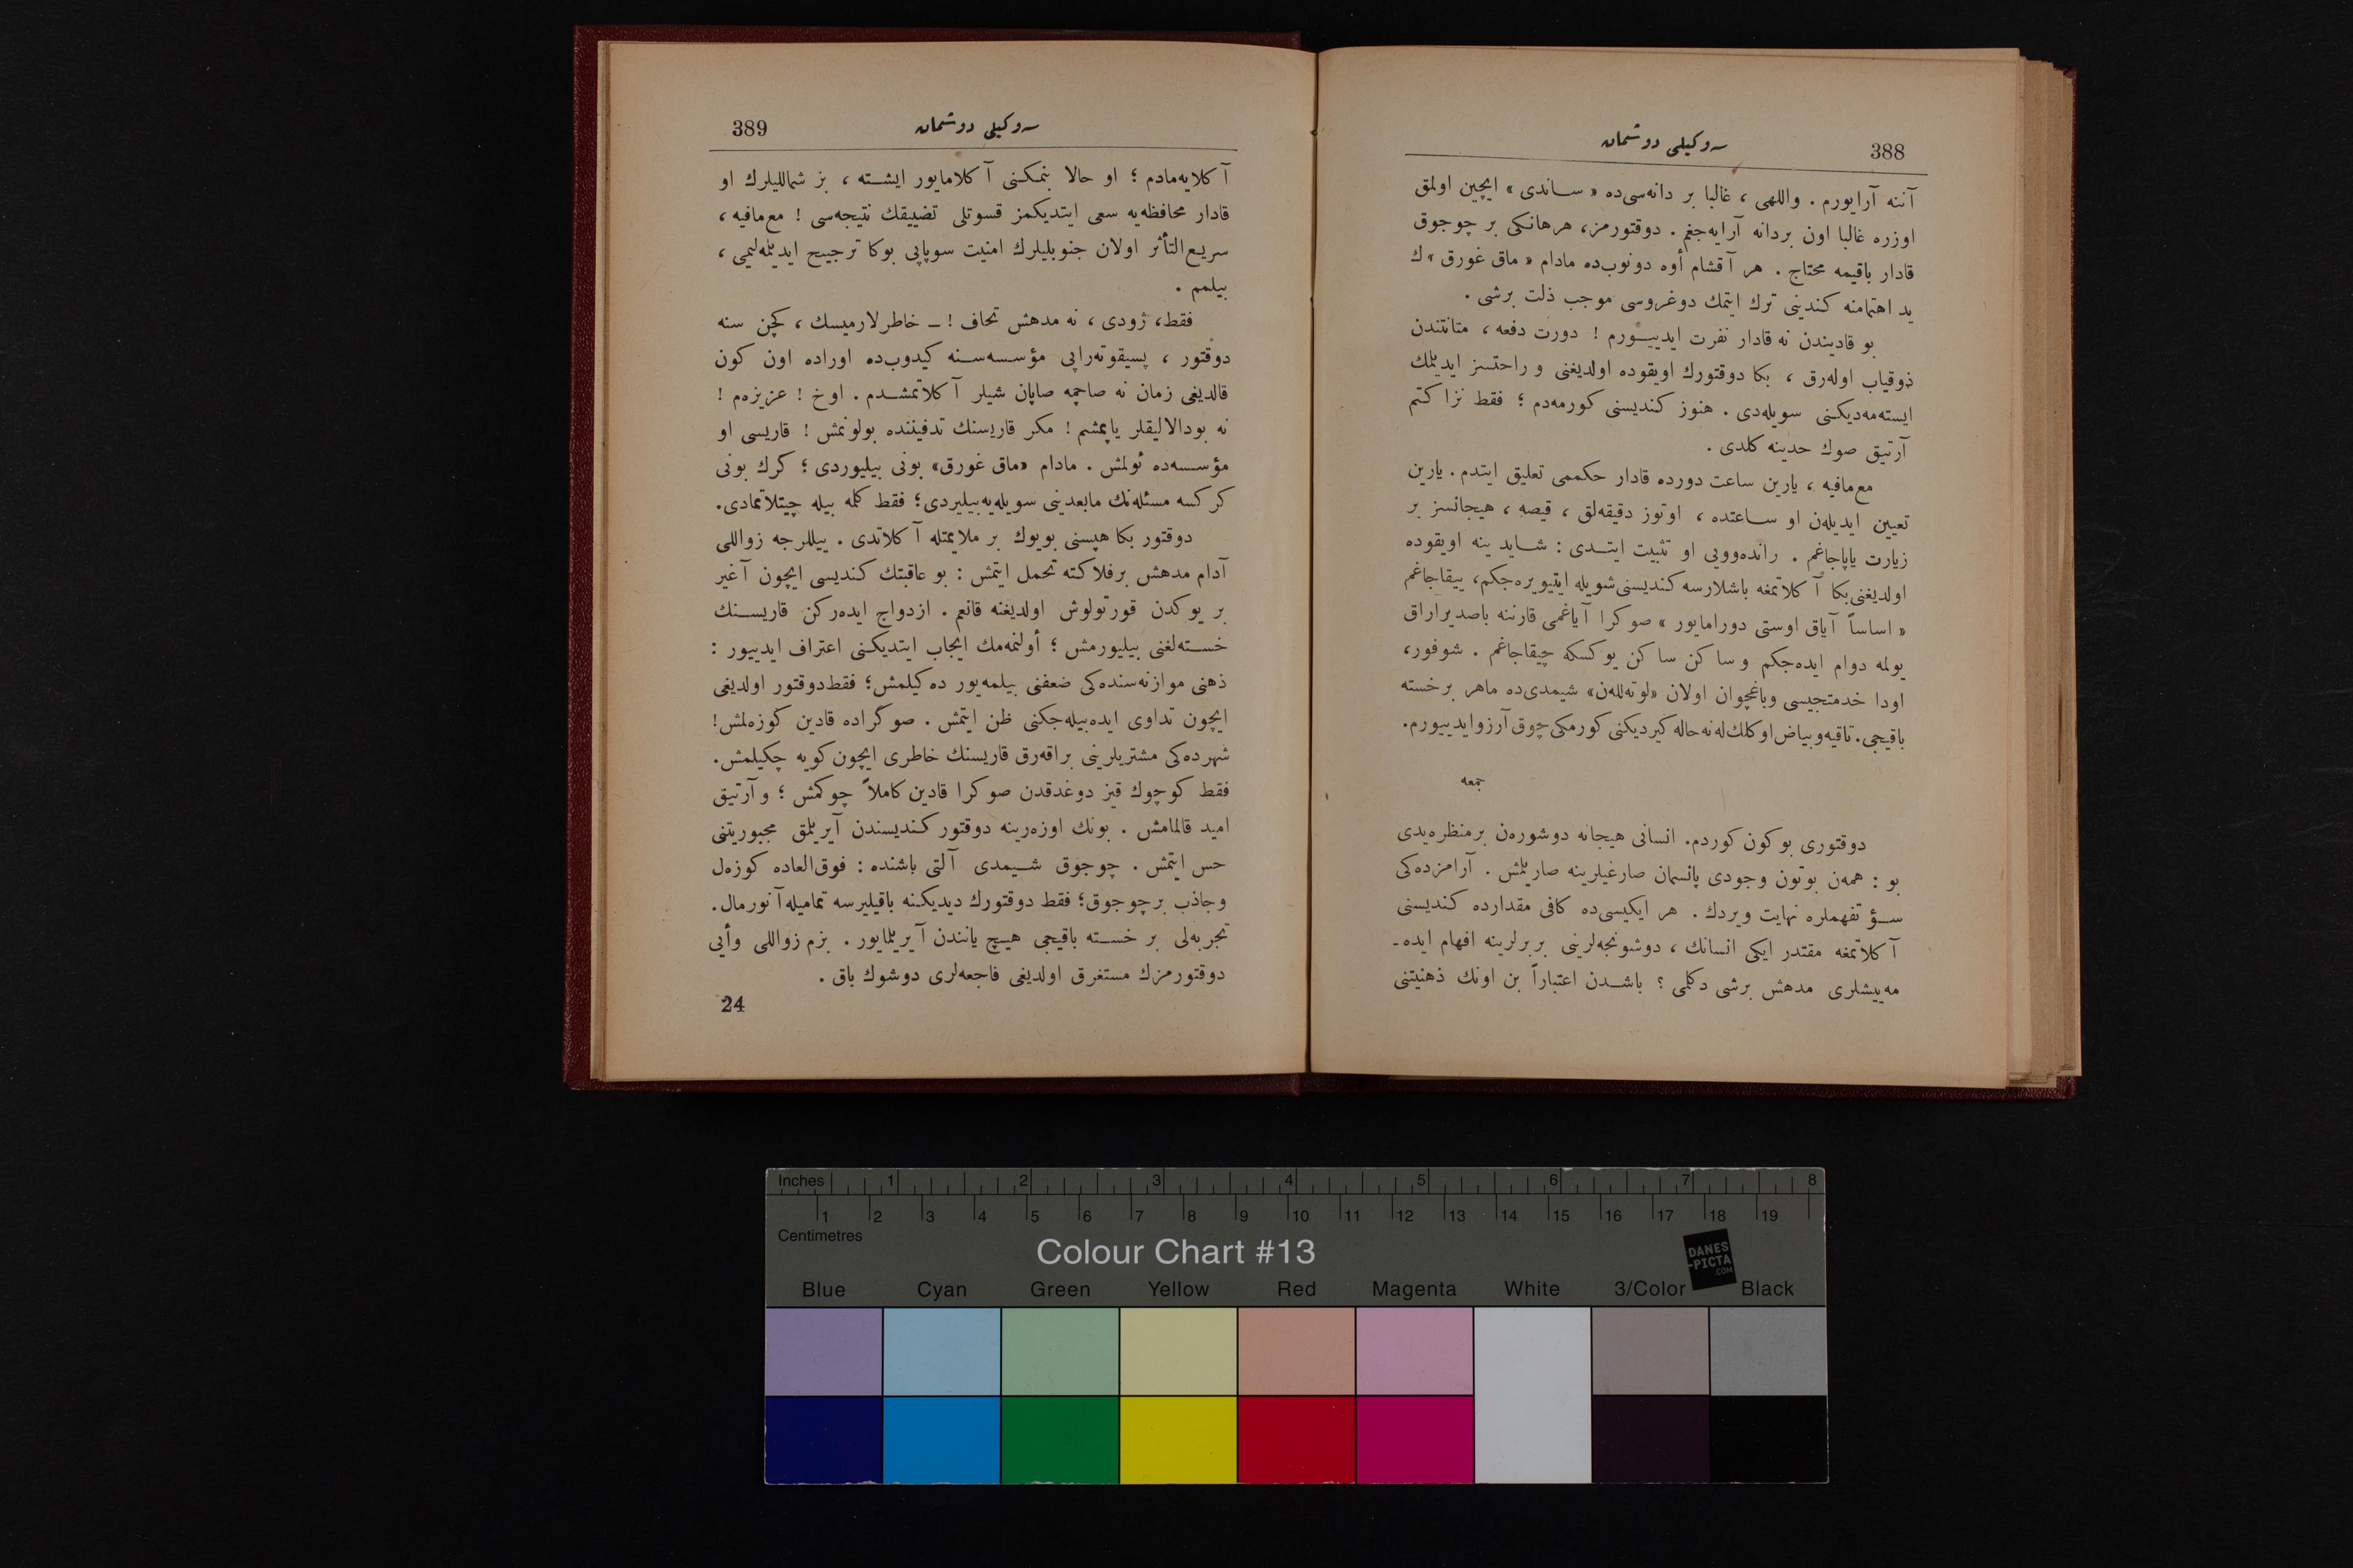 388
سوكيلى دوشمان
آننه آرايورم . واللهى ، غالبا بر دانه‌سى‌ده « ساندى » ايچين اولمق
اوزره غالبا اون بردانه آرايه‌جغم . دوقتورمز، هرهانكى بر چوجوق
قادار باقيمه محتاج . هر آقشام أوه دونوب‌ده مادام « ماق غورق »ك
يد اهتمامنه كندينى ترك ايتمك دوغروسى موجب ذلت برشى .
بو قاديندن نه قادار نفرت ايدييورم ! دورت دفعه ، متانتندن
ذوقياب اوله‌رق ، بكا دوقتورك اويقوده اولديغنى و راحتسز ايديلمك
ايسته‌مه‌ديكنى سويله‌دى . هنوز كنديسنى كورمه‌دم ؛ فقط نزاكتم
آرتيق صوك حدينه كلدى .
مع‌مافيه ، يارين ساعت دورده قادار حكممى تعليق ايتدم . يارين
تعيين ايديله‌ن او ساعتده ، اوتوز دقيقه‌لق ، قيصه ، هيجانسز بر
زيارت ياپاجاغم . رانده‌وويى او تثبيت ايتدى : شايد ينه اويقوده
اولديغنى بكا آكلاتمغه باشلارسه كنديسنى شويله ايتيويره‌جكم، ييقاجاغم
« اساساً آياق اوستى دورامايور » صوكرا آياغمى قارننه باصديراراق
يولمه دوام ايده‌جكم وساكن ساكن يوكسكه چيقاجاغم . شوفور،
اودا خدمتجيسى وباغچوان اولان «لوته‌لله‌ن» شيمدى‌ده ماهر برخسته
باقيجى. تاقيه‌وبياض‌اوكلك‌له‌نه‌حاله‌كيرديكنى كورمكى چوق آرزوايدييورم.
جمعه
دوقتورى بوكون كوردم. انسانى هيجانه دوشوره‌ن برمنظره‌يدى
بو : همه‌ن بوتون وجودى پانسمان صارغيلرينه صاريلمش . آرامزده‌كى
سؤ تفهملره نهايت ويردك . هر ايكيسى‌ده كافى مقدارده كنديسنى
آكلاتمغه مقتدر ايكى انسانك ، دوشونجه‌لرينى بربرلرينه افهام ايده-
مه‌ييشلرى مدهش برشى دكلمى ؟ باشدن اعتباراً بن اونك ذهنيتنى
389
سوكيلى دوشمان
آكلايه‌مادم ؛ او حالا بنمكنى آكلامايور ايشته ، بز شماللیلرك او
قادار محافظه‌يه سعى ايتديكمز قسوتلى تضييقك نتيجه‌سى ! مع‌مافيه ،
سريع‌التأثر اولان جنوبليلرك امنيت سوپاپى بوكا ترجيح ايديلمه‌ليمى ،
بيلمم .
فقط، ژودى ، نه مدهش تحاف ! ــ خاطرلارميسك ، كچن سنه
دوقتور ، پسيقوته‌راپى مؤسسه‌سنه كيدوب‌ده اوراده اون كون
قالديغى زمان نه صاچمه صاپان شيلر آكلاتمشدم . اوخ ! عزيزه‌م !
نه بودالاليقلر ياپمشم ! مكر قاريسنك تدفيننده بولونمش ! قاريسى او
مؤسسه‌ده ئولمش . مادام «ماق غورق» بونى بيليوردى ؛ كرك بونى
كركسه مسئله‌نك مابعدينى سويله‌يه‌بيليردى؛ فقط كلمه بيله چيتلاتمادى.
دوقتور بكا هپسنى بويوك بر ملايمتله آكلاتدى . ييللرجه زواللى
آدام مدهش برفلاكته تحمل ايتمش : بو عاقبتك كنديسى ايچون آغير
بر يوكدن قورتولوش اولديغنه قانعم . ازدواج ايده‌ركن قاريسنك
خسته‌لغنى بيليورمش ؛ أولنمه‌مك ايجاب ايتديكنى اعتراف ايدييور :
ذهنى موازنه‌سنده‌كى ضعفنى بيلمه‌يور ده‌كيلمش؛ فقط دوقتور اولديغى
ايچون تداوى ايده‌بيله‌جكنى ظن ايتمش . صوكراده قادين كوزه‌لمش!
شهرده‌كى مشتريلرينى براقه‌رق قاريسنك خاطرى ايچون كويه چكيلمش.
فقط كوچوك قيز دوغدقدن صوكرا قادين كاملاً چوكمش ؛ وآرتيق
اميد قالمامش . بونك اوزه‌رينه دوقتور كنديسندن آيريلمق مجبوريتنى
حس ايتمش . چوجوق شيمدى آلتى باشنده : فوق‌العاده كوزه‌ل
وجاذب برچوجوق؛ فقط دوقتورك ديديكنه باقيليرسه تماميله آنورمال.
تجربه‌لى بر خسته باقيجى هيچ يانندن آيريلمايور . بزم زواللى وأيى
دوقتورمزك مستغرق اولديغى فاجعه‌لرى دوشوك باق .
24
Inches 1 2 3 4 5 6 7 8
1 2 3 4 5 6 7 8 9 10 11 12 13 14 15 16 17 18 19
Centimetres
Colour Chart #13
DANES
-PICTA
.COM
Blue Cyan Green Yellow Red Magenta White 3/Color Black